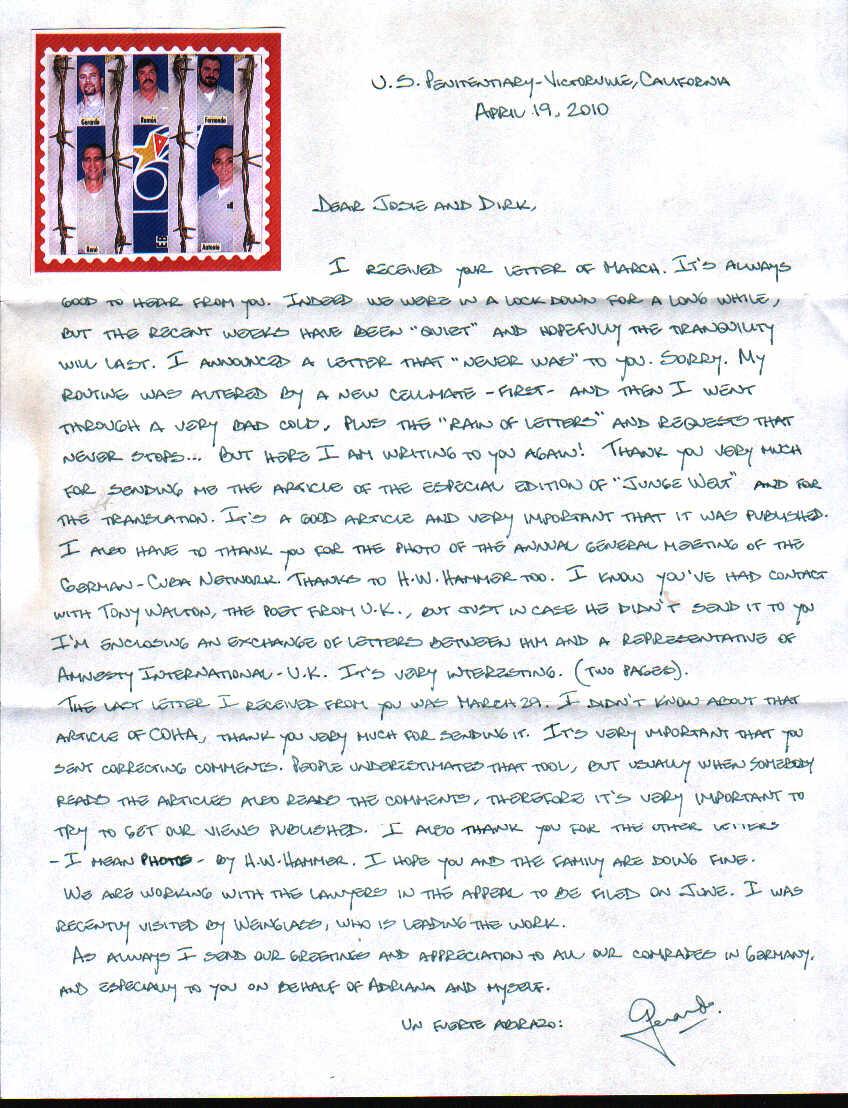 Gerardo
Ramón
Fernando
René
Antonio
U.S. PENITENTIARY-VICTORVILLE, CALIFORNIA
APRIL 19, 2010
DEAR JOSIE AND DIRK,
I RECEIVED YOUR LETTER OF MARCH. IT'S ALWAYS
GOOD TO HEAR FROM YOU. INDEED WE WERE IN A LOCK DOWN FOR A LONG WHILE,
BUT THE RECENT WEEKS HAVE BEEN "QUIET" AND HOPEFULLY THE TRANQUILITY
WILL LAST. I ANNOUNCED A LETTER THAT "NEVER WAS" TO YOU. SORRY. MY
ROUTINE WAS ALTERED BY A NEW CELLMATE -FIRST- AND THEN I WENT
THROUGH A VERY BAD COLD, PLUS THE "RAIN OF LETTERS" AND REQUESTS THAT
NEVER STOPS... BUT HERE I AM WRITING TO YOU AGAIN! THANK YOU VERY MUCH
FOR SENDING ME THE ARTICLE OF THE ESPECIAL EDITION OF "JUNGE WELT" AND FOR
THE TRANSLATION. IT'S A GOOD ARTICLE AND VERY IMPORTANT THAT IT WAS PUBLISHED.
I ALSO HAVE TO THANK YOU FOR THE PHOTO OF THE ANNUAL GENERAL MEETING OF THE
GERMAN-CUBA NETWORK. THANKS TO H.W. HAMMER TOO. I KNOW YOU'VE HAD CONTACT
WITH TONY WALTON, THE POET FROM U.K., BUT JUST IN CASE HE DIDN'T SEND IT TO YOU
I'M ENCLOSING AN EXCHANGE OF LETTERS BETWEEN HIM AND A REPRESENTATIVE OF
AMNESTY INTERNATIONAL-U.K. IT'S VERY INTERESTING. (TWO PAGES).
THE LAST LETTER I RECEIVED FROM YOU WAS MARCH 29. I DIDN'T KNOW ABOUT THAT
ARTICLE OF COHA, THANK YOU VERY MUCH FOR SENDING IT. IT'S VERY IMPORTANT THAT YOU
SENT CORRECTING COMMENTS. PEOPLE UNDERESTIMATES THAT TOOL, BUT USUALLY WHEN SOMEBODY
READS THE ARTICLES ALSO READS THE COMMENTS, THEREFORE IT'S VERY IMPORTANT TO
TRY TO GET OUR VIEWS PUBLISHED. I ALSO THANK YOU FOR THE OTHER LETTERS
-I MEAN PHOTOS- BY H.W. HAMMER. I HOPE YOU AND THE FAMILY ARE DOING FINE.
WE ARE WORKING WITH THE LAWYERS IN THE APPEAL TO BE FILED ON JUNE. I WAS
RECENTLY VISITED BY WEINGLASS, WHO IS LEADING THE WORK.
AS ALWAYS I SEND OUR GREETINGS AND APPRECIATION TO ALL OUR COMRADES IN GERMANY,
AND ESPECIALLY TO YOU ON BEHALF OF ADRIANA AND MYSELF.
UN FUERTE ABRAZO:
Gerardo.